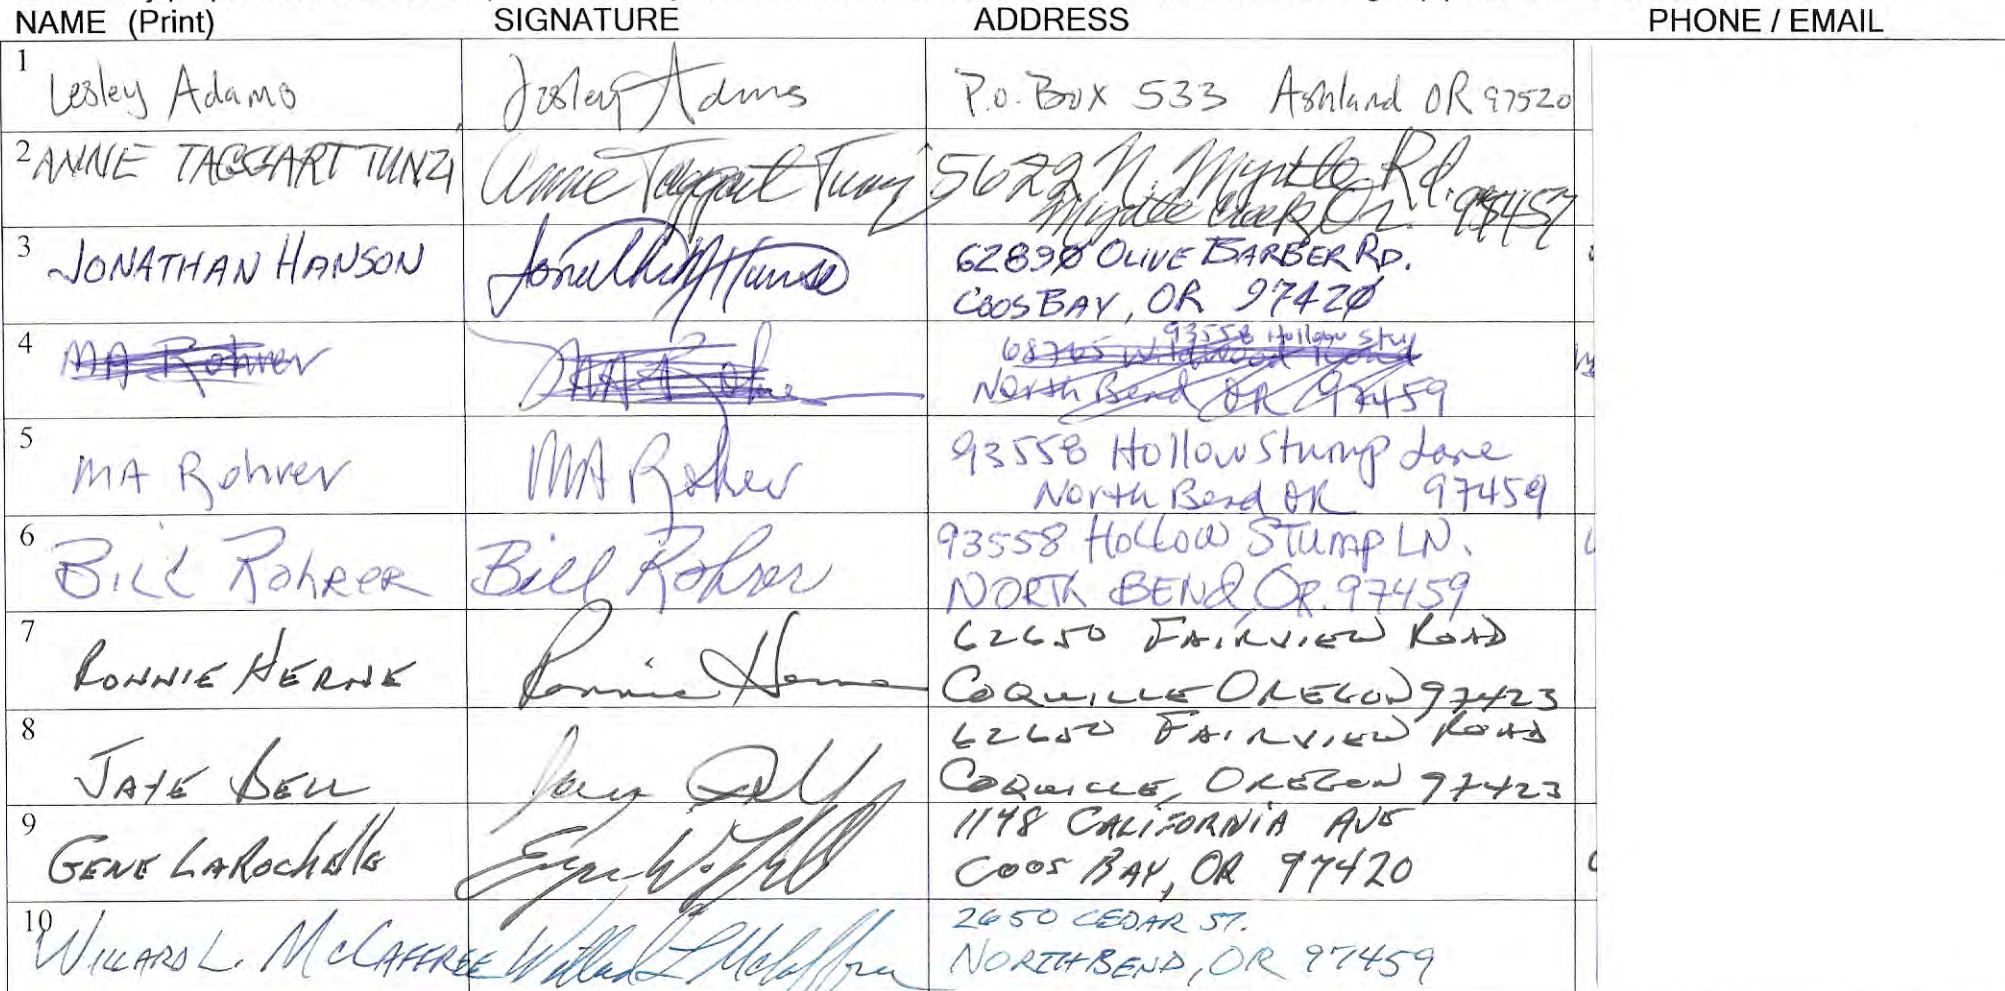 NAME (Print) SIGNATURE ADDRESS PHONE / EMAIL
1 Lesley Adams Lesley Adams P.O. Box 533 Ashland OR 97520
2 ANNE TAGGART TUNZI Anne Taggart Tunzi 5622 N. Myrtle Rd.
Myrtle Creek Or. 97457
3 JONATHAN HANSON 62890 OLIVE BARBER RD.
COOS BAY, OR 97420
4 MA Rohrer MA Rohrer 93558 Hollow Stu
68765 Wildwood Road
North Bend OR 97459
5 MA Rohrer MA Rohrer 93558 Hollow Stump Lane
North Bend OR 97459
6 BILL ROHRER Bill Rohrer 93558 HOLLOW STUMP LN.
NORTH BEND, OR. 97459
7 RONNIE HERNE Ronnie Herne 62650 FAIRVIEW ROAD
COQUILLE OREGON 97423
8 JAYE BELL Jaye Bell 62650 FAIRVIEW ROAD
COQUILLE, OREGON 97423
9 GENE LAROCHELLE 1148 CALIFORNIA AVE
COOS BAY, OR 97420
10 WILLARD L. MCCAFFREE Willard L McCaffree 2650 CEDAR ST.
NORTH BEND, OR 97459